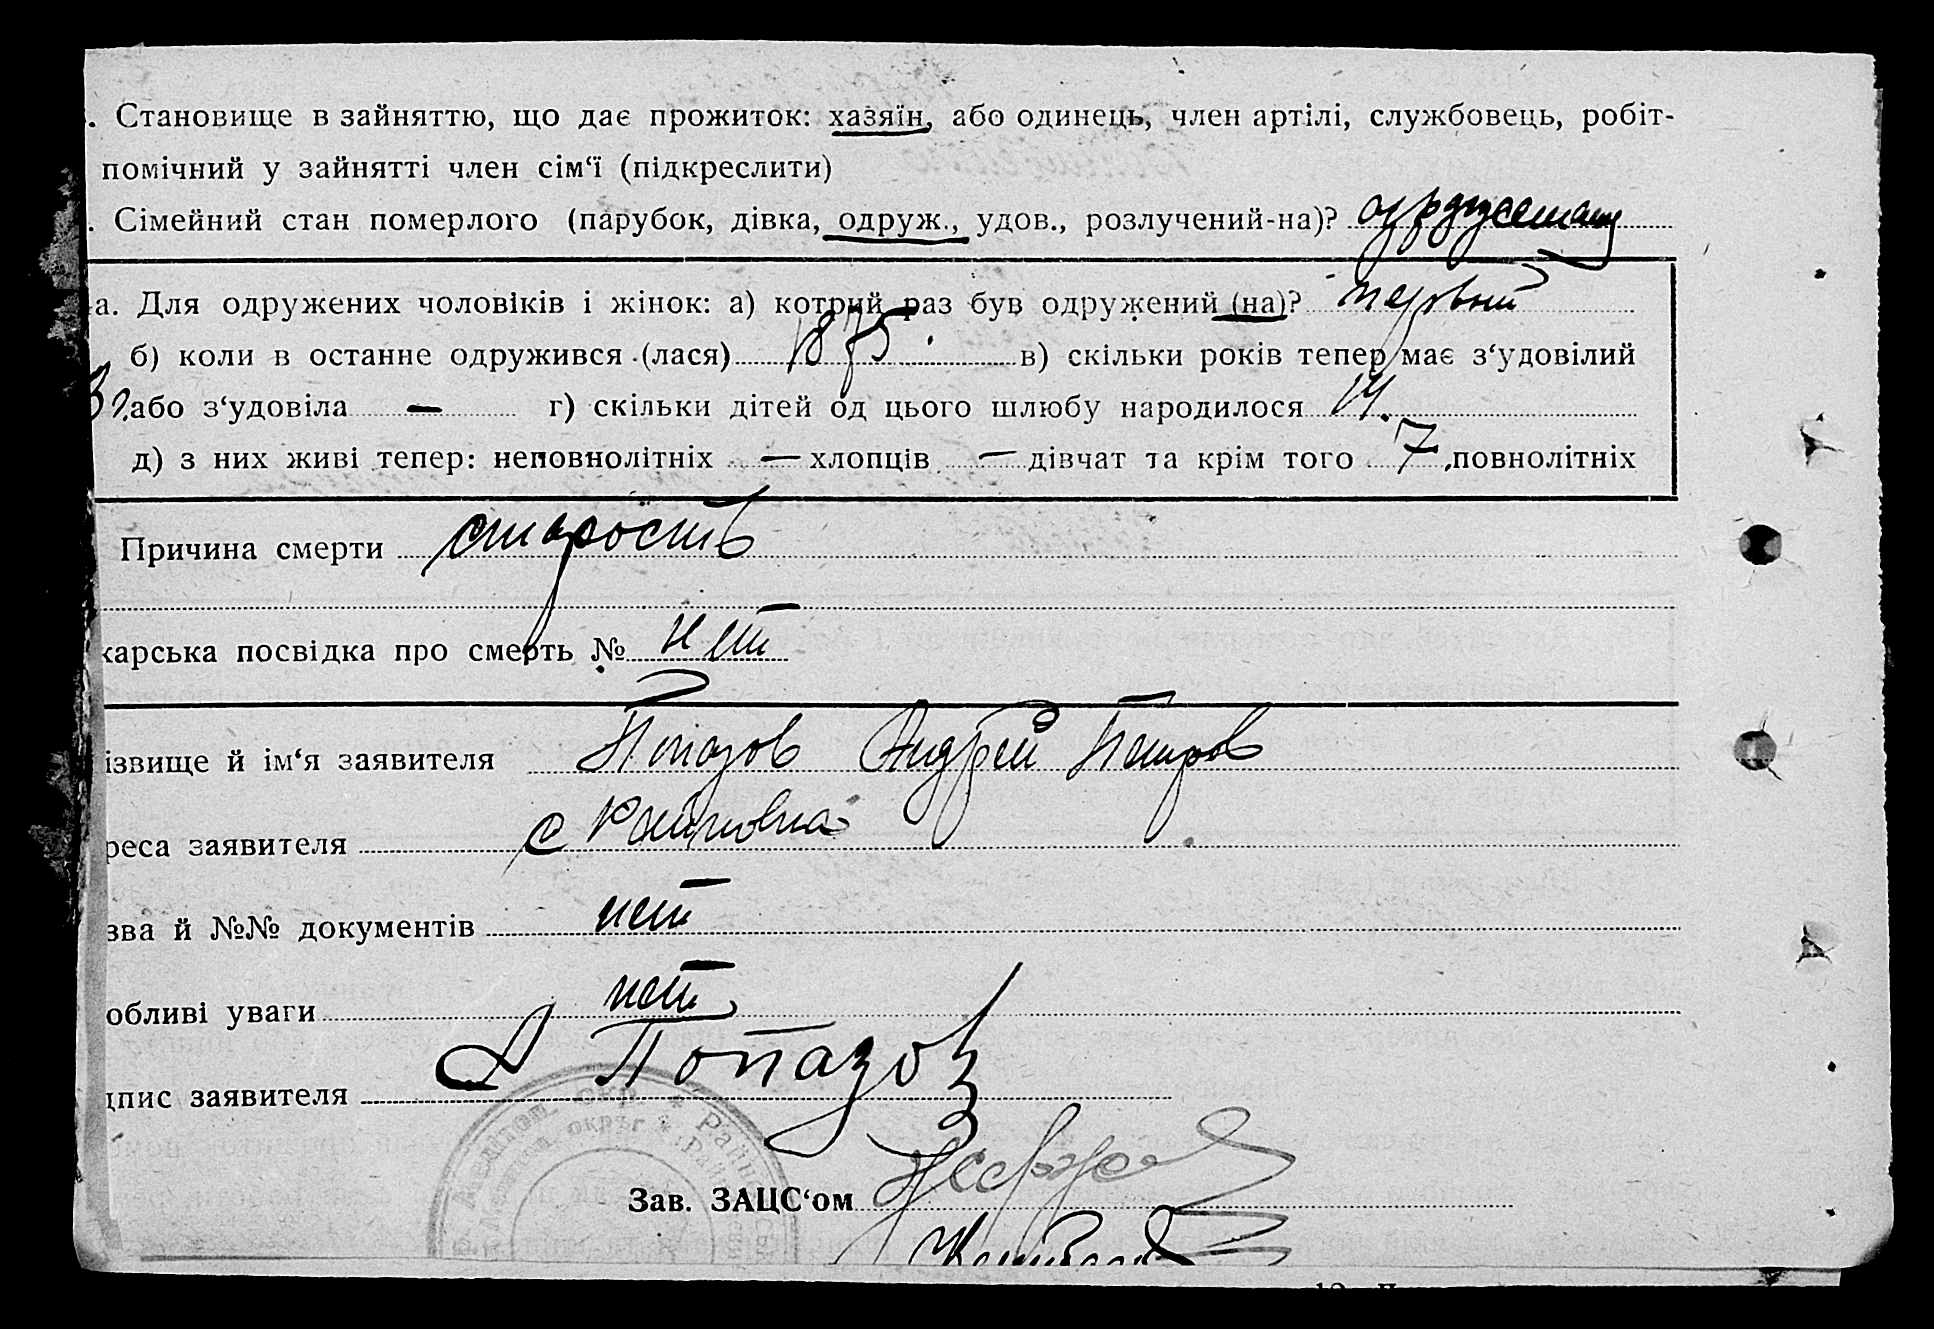 . Становище в зайняттю, що дає прожиток: хазяїн, або одинець, член артілі, службовець, робіт-
помічний у зайнятті член сім‘ї (підкреслити)
. Сімейний стан померлого (парубок, дівка, одруж., удов., розлучений-на)?
а. Для одружених чоловіків і жінок: а) котрий раз був одружений (на)? первый
б) коли в останне одружився (лася) 1875. в) скільки років тепер має з‘удовілий
або з‘удовіла — г) скільки дітей од цього шлюбу народилося 14.
д) з них живі тепер: неповнолітніх — хлопців — дівчат та крім того 7 повнолітніх
Причина смерти старость
карська посвідка про смерть № нет
ізвище й ім‘я заявителя Попазов Андрей Петров
реса заявителя с Райновка
зва й №№ документів нет
обливі уваги нет
дпис заявителя А Попазов
Мелітоп. окр. * Райн
округ * Рай
Зав. ЗАЦС‘ом